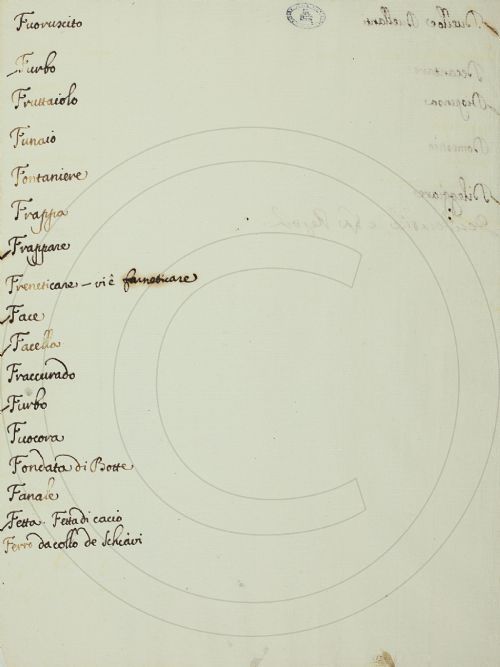 Fuoruscito
Furbo
Fruttaiolo
Funaio
Fontaniere
Frappa
Frappare
Freneticare – vi è farneticare
Face
Facella
Fraccurado
Furbo
Fuocora
Fondata di Botte
Fanale
Fetta. Fetta di cacio
Ferro da collo de Schiavi